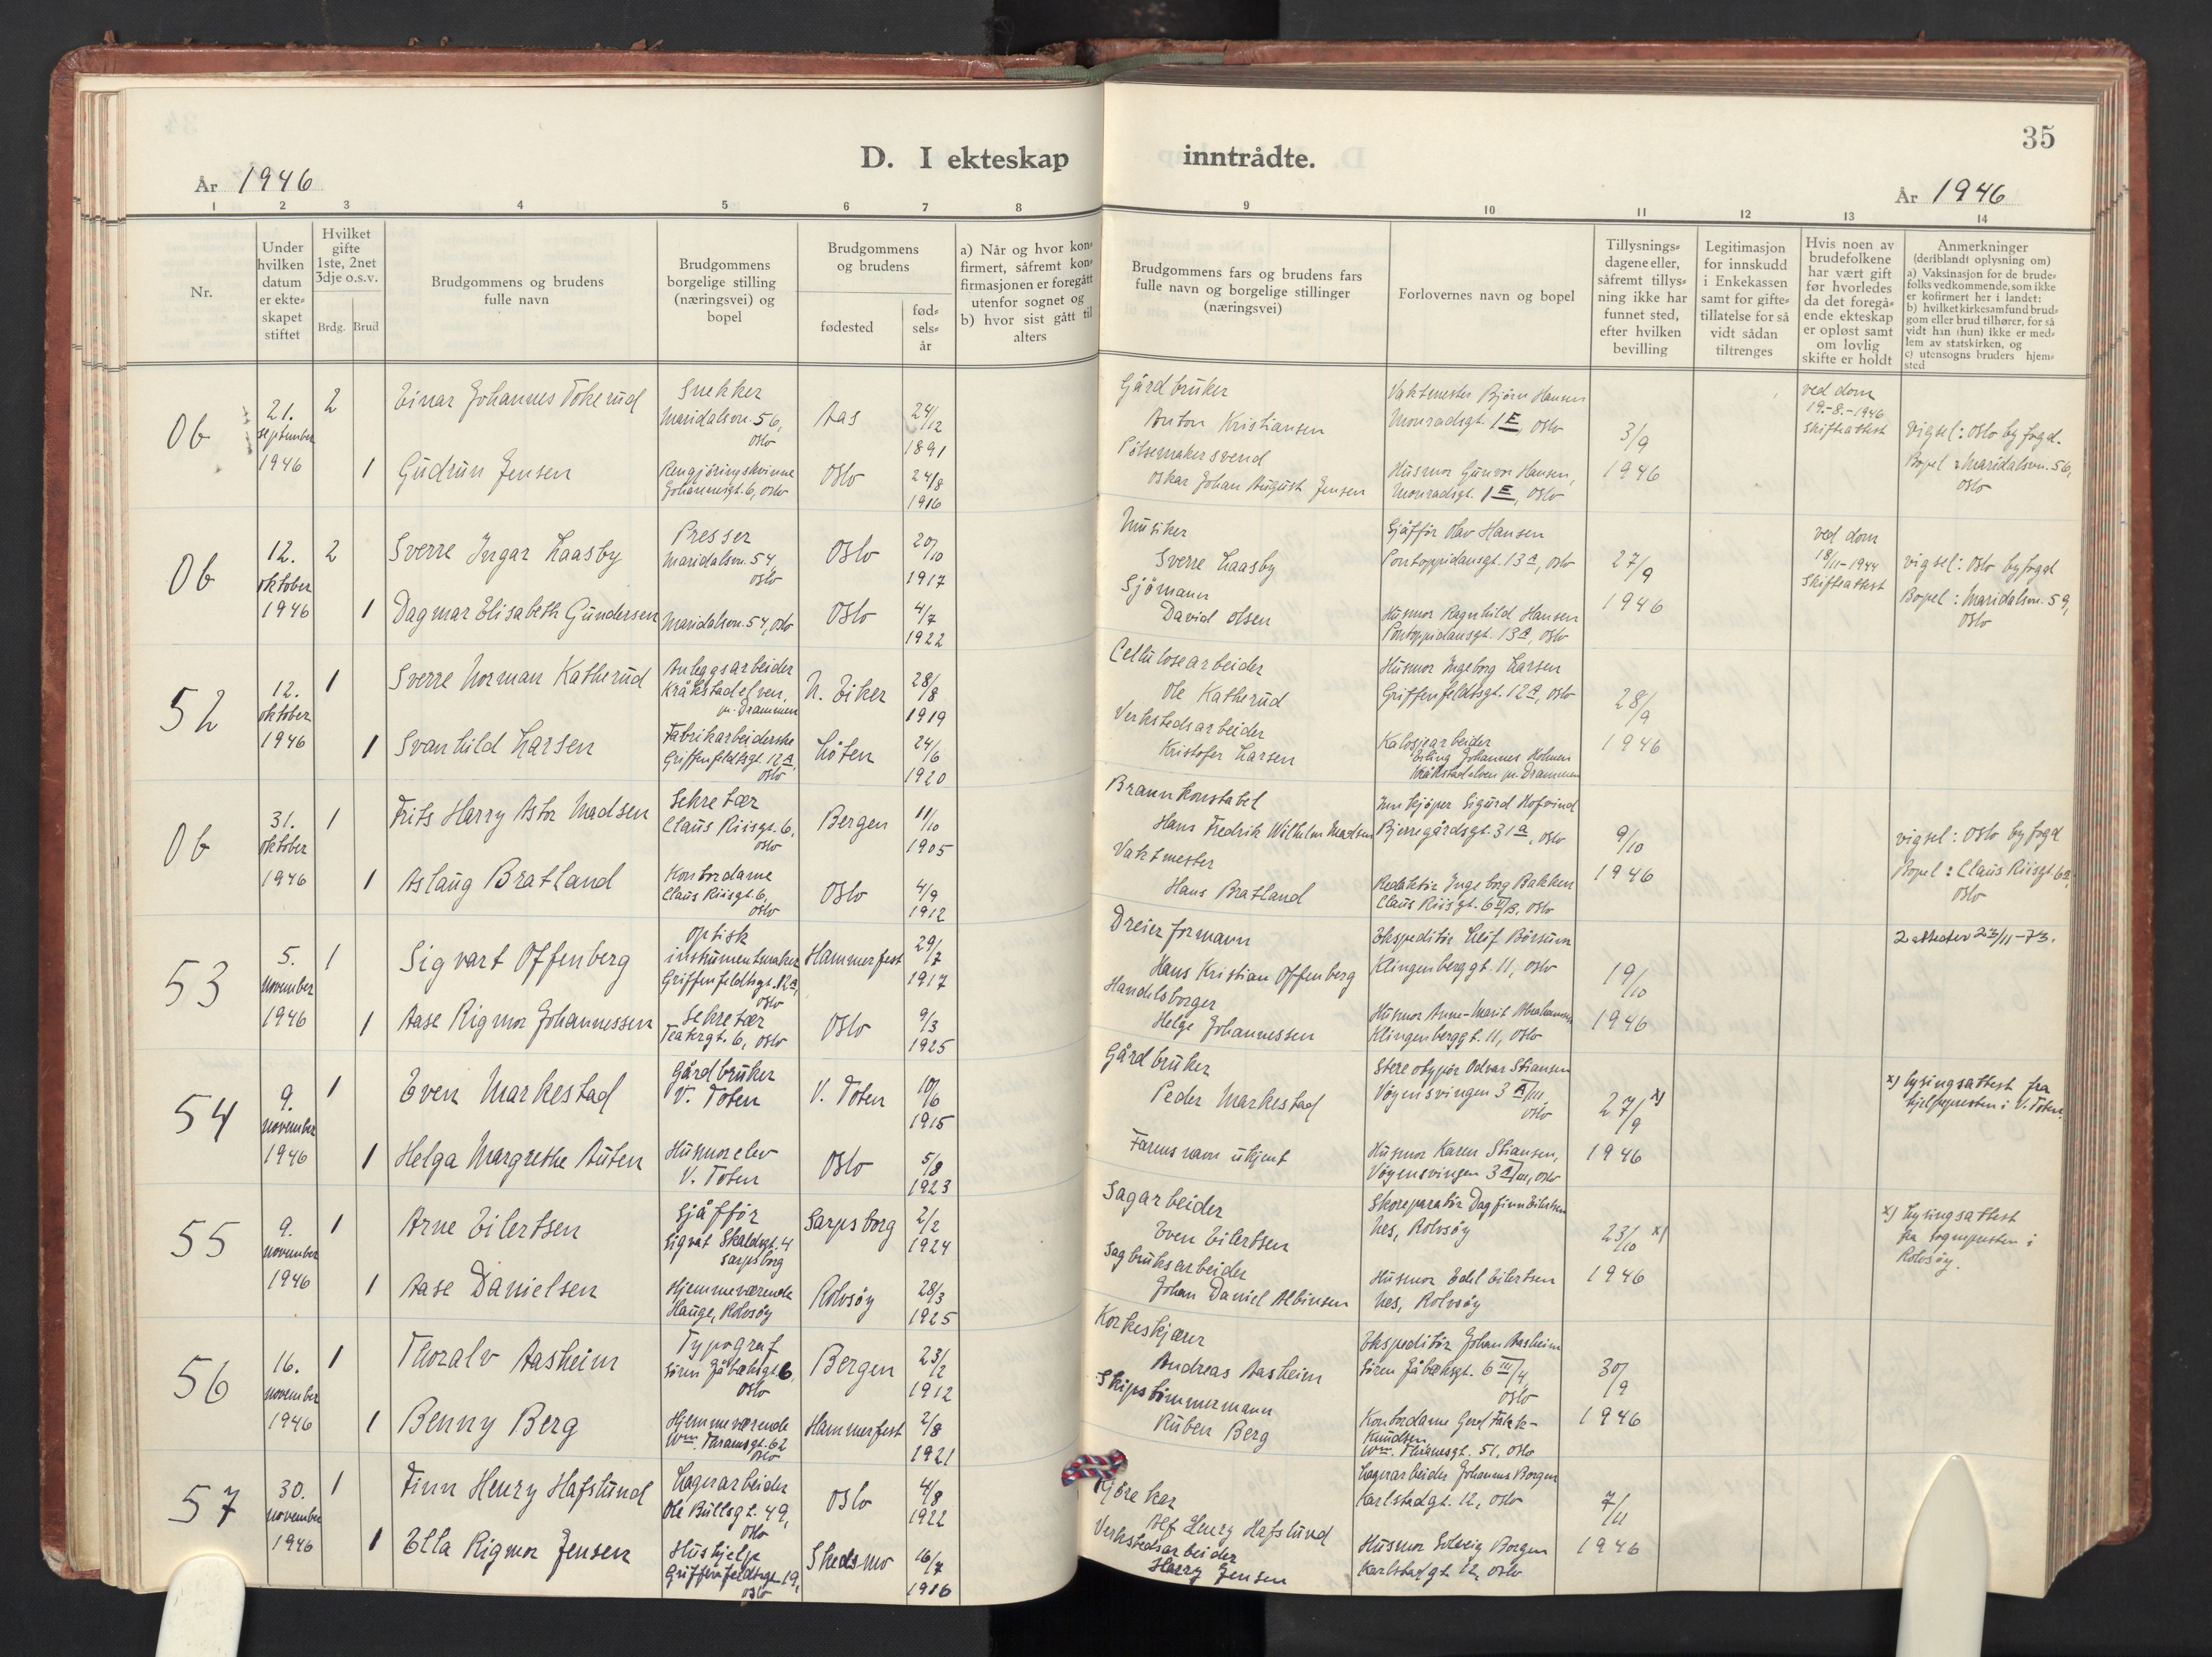 35
D. I ekteskap inntrådte.
År 1946
År 1946
1 2 3 4 5 6 7 8 9 10 11 12 13 14
Nr.
Under
hvilken
datum
er ekte-
skapet
stiftet
Hvilket
gifte
1ste, 2net
3dje o.s.v.
Brdg. Brud
Brudgommens og brudens
fulle navn
Brudgommens
borgelige stilling
(næringsvei) og
bopel
Brudgommens
og brudens
fødested
fød-
sels-
år
a) Når og hvor kon-
firmert, såfremt kon-
firmasjonen er foregått
utenfor sognet og
b) hvor sist gått til
alters
Brudgommens fars og brudens fars
fulle navn og borgelige stillinger
(næringsvei)
Forlovernes navn og bopel
Tillysnings-
dagene eller,
såfremt tillys-
ning ikke har
funnet sted,
efter hvilken
bevilling
Legitimasjon
for innskudd
i Enkekassen
samt for gifte-
tillatelse for så
vidt sådan
tiltrenges
Hvis noen av
brudefolkene
har vært gift
før hvorledes
da det foregå-
ende ekteskap
er opløst samt
om lovlig
skifte er holdt
Anmerkninger
(deriblandt oplysning om)
a) Vaksinasjon for de brude-
folks vedkommende, som ikke
er kofirmert her i landet:
b) hvilket kirkesamfund brud-
gom eller brud tilhører, for så
vidt han (hun) ikke er med-
lem av statskirken, og
c) utensogns bruders hjem-
sted
Ob
21.
september
1946
2
Einar Johannes Tokerud
Snekker
Maridalsvn. 56,
Oslo
Aas
24/12
1891
Gårdbruker
Anton Kristiansen
Vaktmester Bjørn Hansen
Monradsgt. 1E, Oslo
3/9
1946
ved dom
19.-8.-1946
Skifteattest
Vigsel: Oslo byfogd.
Bopel: Maridalsvn. 56,
Oslo
1
Gudrun Jensen
Rengjøringskvinne
Johannesgt. 6, Oslo
Oslo
24/8
1916
Pølsemakersvend
Oskar Johan August Jensen
Husmor Gunvor Hansen,
Monradsgt. 1E, Oslo
Ob
12.
oktober
1946
2
Sverre Ingar Laasby
Presser
Maridalsvn. 54,
Oslo
Oslo
20/10
1917
Musiker
Sverre Laasby
Sjåffør Olav Hansen
Pontoppidansgt. 13a, Oslo
27/9
1946
ved dom
18/11-1944
Skifteattest
Vigsel: Oslo byfogd
Bopel: Maridalsvn. 59,
Oslo
1
Dagmar Elisabeth Gundersen
Maridalsvn. 54, Oslo
Oslo
4/7
1922
Sjømann
David Olsen
Husmor Ragnhild Hansen
Pontoppidansgt. 13a, Oslo
52
12.
oktober
1946
1
Sverre Norman Katherud
Anleggsarbeider
Kråkstadelven,
pr. Drammen
N. Eiker
28/8
1919
Cellulosearbeider
Ole Katherud
Husmor Ingeborg Larsen
Griffenfeldtsgt. 12a, Oslo
28/9
1946
1
Svanhild Larsen
Fabrikarbeiderske
Griffenfeldtsgt. 12a,
Oslo
Løten
24/6
1920
Verkstedsarbeider
Kristofer Larsen
Kalosjearbeider
Erling Johannes Holmen
Kråkstadelven pr. Drammen
Ob
31.
oktober
1946
1
Frits Harry Astor Madsen
Sekretær
Claus Riisgt. 6,
Oslo
Bergen
11/10
1905
Brannkonstabel
Hans Fredrik Wilhelm Madsen
Innkjøper Sigurd Hofvind
Bjerregårdsgt. 31a, Oslo
9/10
1946
Vigsel: Oslo byfogd
Bopel: Claus Riisgt. 6a,
Oslo
1
Aslaug Bratland
Kontordame
Claus Riisgt. 6,
Oslo
Oslo
4/9
1912
Vaktmester
Hans Bratland
Redaktør Inge borg Bakken
Claus Riisgt. 6 , Oslo
53
5.
november
1946
1
Sigvart Offenberg
Optisk
instrumentmaker
Griffenfeldtsgt. 12a,
Oslo
Hammerfest
29/7
1917
Dreierformann
Hans Kristian Offenberg
Ekspeditør Leif Børsum
Klingenberggt. 11, Oslo
19/10
1946
2 attester 23/11-73.
1
Aase Rigmor Johannessen
Sekretær
Teatergt. 6, Oslo
Oslo
9/3
1925
Handelsborger
Helge Johannessen
Husmor Anne-Marit Abrahamsen
Klingenberggt. 11, Oslo
54
9.
november
1946
1
Even Markestad
Gårdbruker
V. Toten
V. Toten
10/6
1915
Gårdbruker
Peder Markestad
Stereotypør Odvar Stiansen
Vøyensvingen 3a/III,
Oslo
27/9 x)
1946
x) Lysingsattest fra
hjelpepresten i V. Toten.
1
Helga Margrethe Auten
Husmorelev
V. Toten
Oslo
5/8
1923
Farens navn ukjent
Husmor Karen Stiansen,
Vøyensvingen 3a/III, Oslo
55
9.
november
1946
1
Arne Eilertsen
Sjåffør
Sigvat Skaldsgt. 4
Sarpsborg
Sarpsborg
2/2
1924
Sagarbeider
Even Eilertsen
Skoreparatør Dagfinn Eilertsen
Nes, Rolvsøy
23/10 x)
1946
x) Lysingsattest
fra sognepresten i
Rolvsøy.
1
Aase Danielsen
Hjemmeværende
Hauge, Rolvsøy
Rolvsøy
28/3
1925
Sagbruksarbeider
Johan Daniel Albinsen
Husmor Edel Eilertsen
Nes, Rolvsøy
56
16.
november
1946
1
Thoralv Aasheim
Typograf
Søren Jåbæksgt. 6,
Oslo
Bergen
23/2
1912
Korkeskjærer
Andreas Aasheim
Ekspeditør Johan Aasheim
Søren Jåbæksgt. 6 III/4,
Oslo
30/9
1946
1
Benny Berg
Hjemmeværende
Wm. Thranesgt. 62
Oslo
Hammerfest
2/8
1921
Skipstømmermann
Ruben Berg
Kontordame Gerd Falck-
Knudsen
Wm. Thranesgt. 51, Oslo
57
30.
november
1946
1
Finn Henry Hafslund
Lagerarbeider
Ole Bullsgt. 49,
Oslo
Oslo
4/8
1922
Kjørekar
Alf Henry Hafslund
Lagerarbeider Johannes Borgen
Karlstadgt. 12, Oslo
7/11
1946
1
Ella Rigmor Jensen
Hushjelp
Griffenfeldtsgt. 19,
Oslo
Skedsmo
16/7
1916
Verkstedsarbeider
Harry Jensen
Husmor Solveig Borgen
Karlstadgt. 12, Oslo